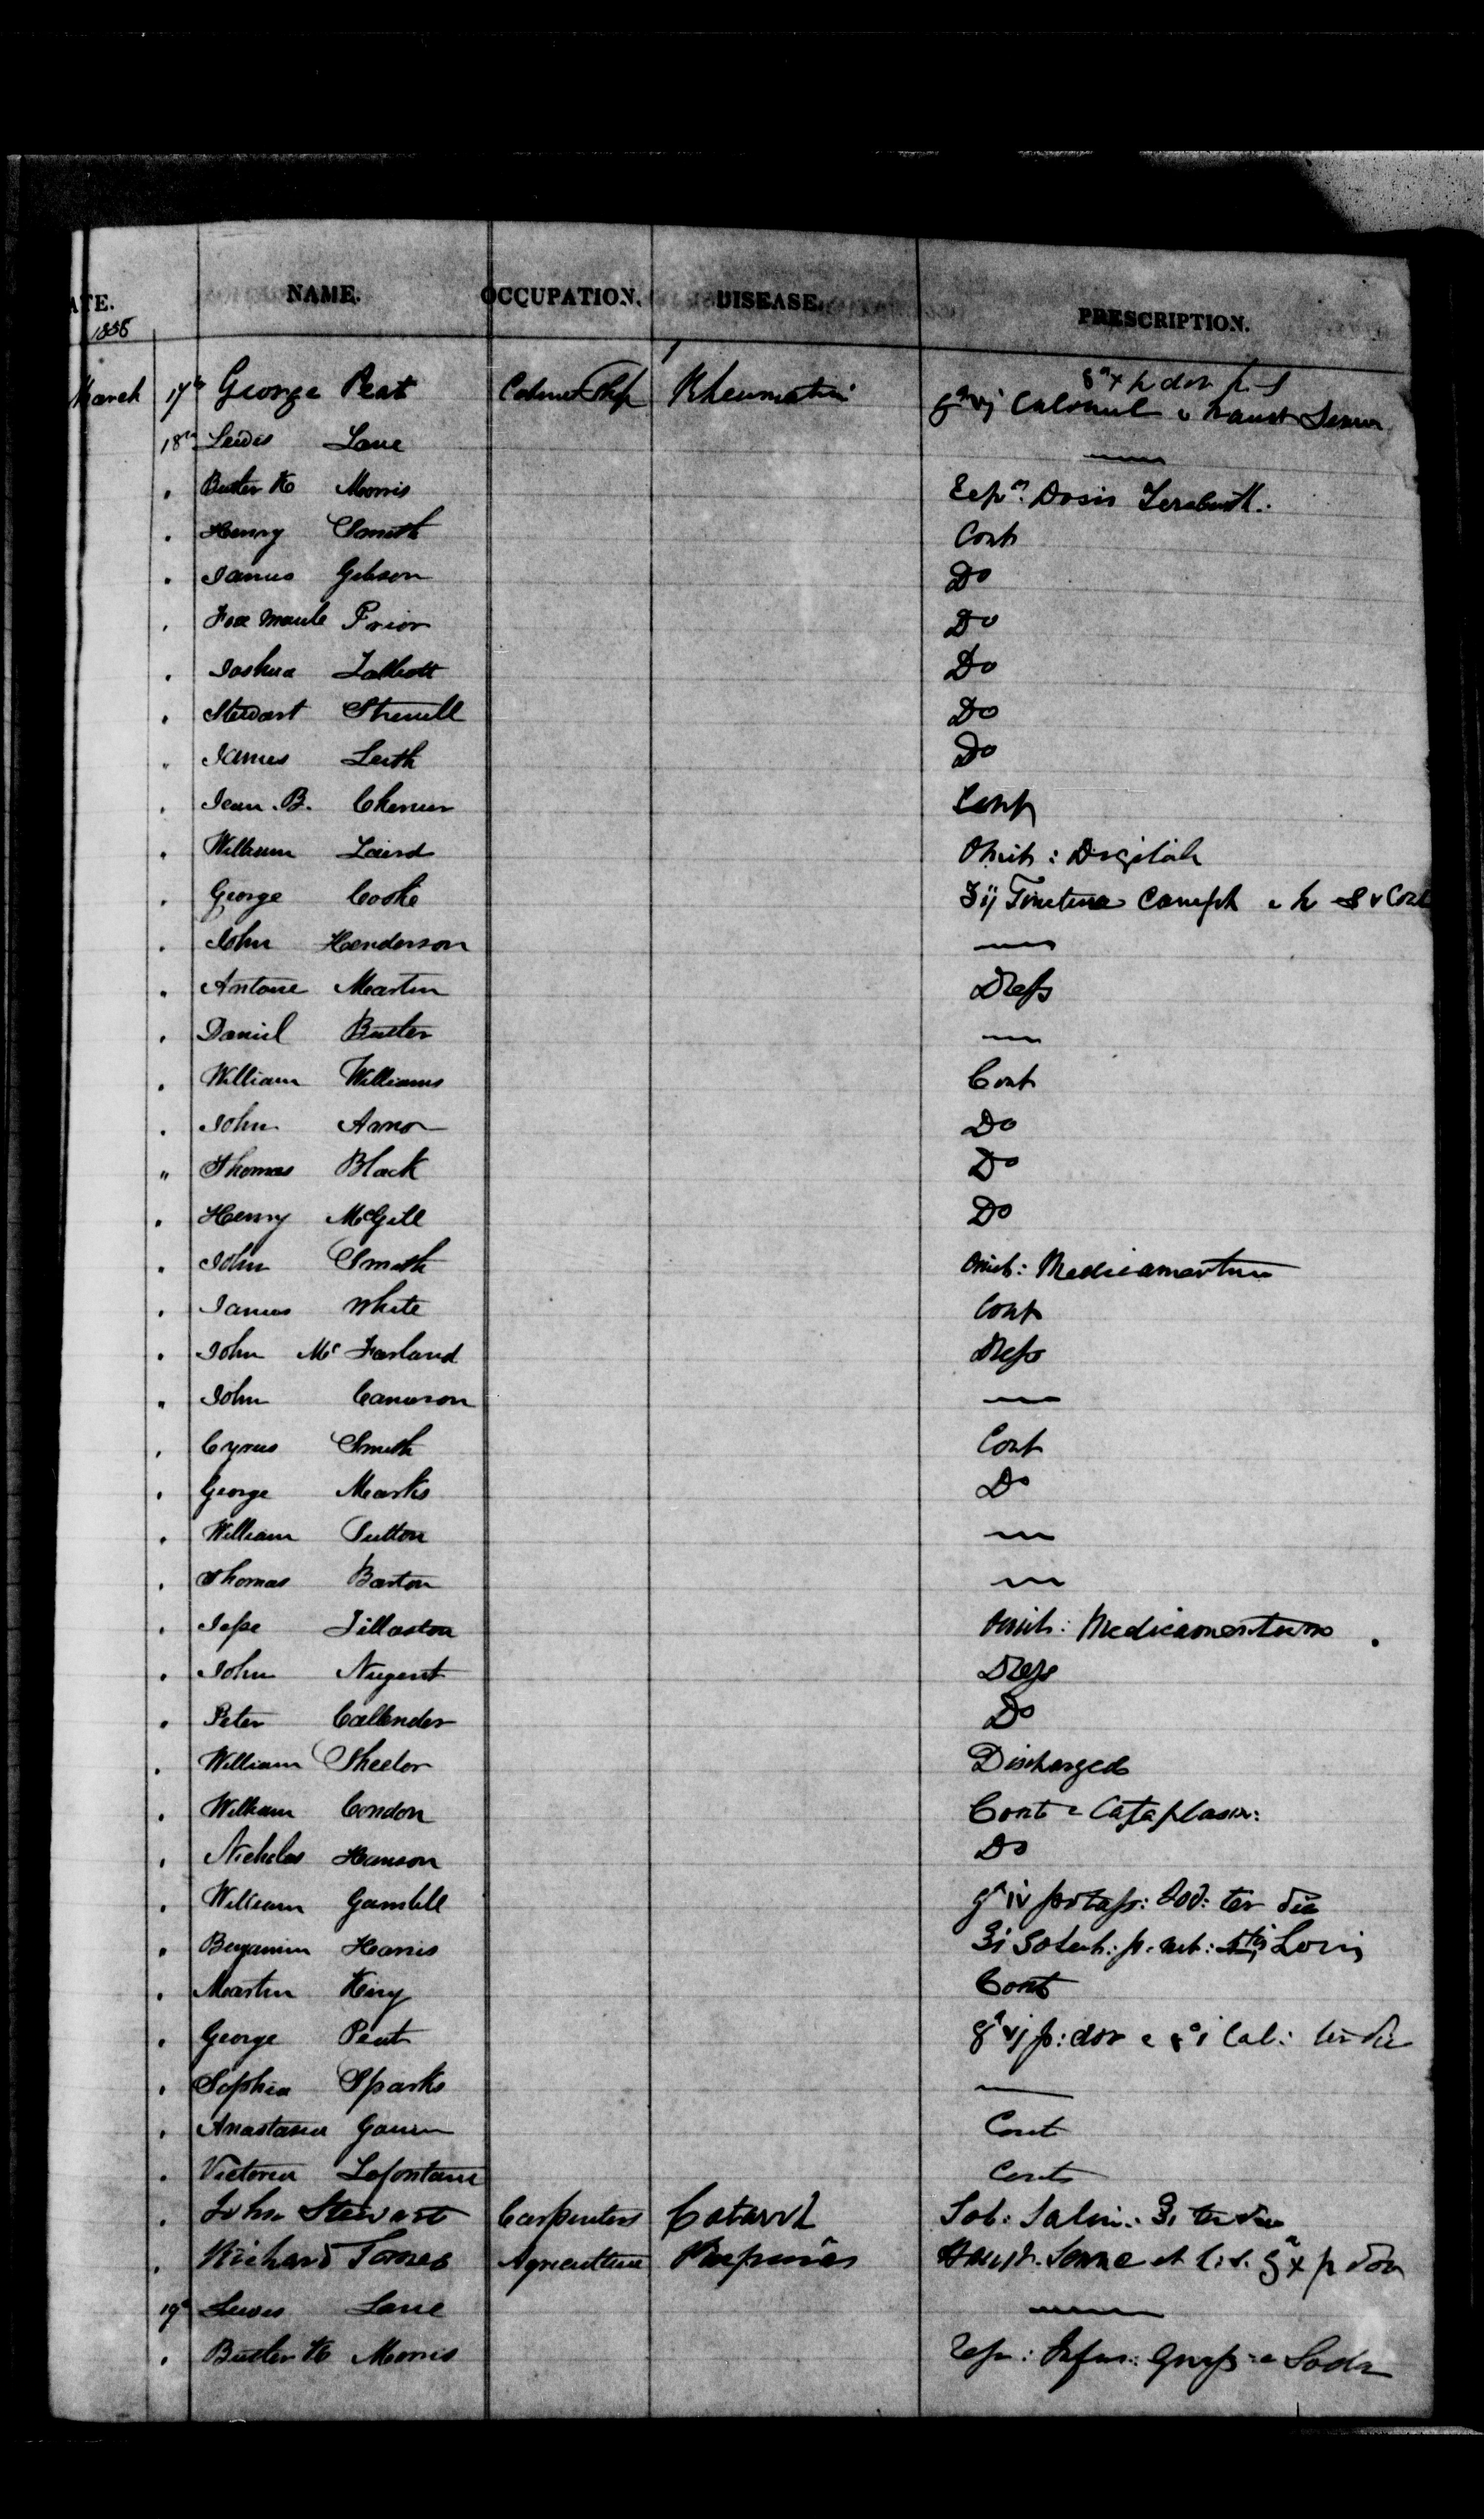 ATE. NAME. OCCUPATION. DISEASE. PRESCRIPTION.
1856
March 17th George Peat Cabinet Shop Rheumatism grx p dov h S
grvj Calomel c haust Senn
18th Lewis Lane —
" Butler K Morris Repn: Dosis Terebinth.
" Henry Smith Cont
" James Gibson Do
" Fox Maule Prior Do
" Joshua Talbott Do
" Stewart Do
" James Leith Do
" Jean. B. Chenier Cont
" William Laird Omit: Digitalis
" George Cooke ʒij Tinctura Camph c h S & Cont
" John Henderson —
" Antoine Martin Dress
" Daniel Butler —
" William Williams Cont
" John Do
" Thomas Black Do
" Henry McGill Do
" John Smith Omit: Medicamentum
" James White Cont
" John Mc Farland Dress
" John Cameron —
" Cyrus Smith Cont
" George Marks Do
" William Sutton —
" Thomas Barton —
" Jesse Tillaston Omit: Medicamentum
" John Nugent Dress
" Peter Callender Do
" William Sheeler Discharged
" William Condon Cont c Cataplasm:
" Nicholas Hanson Do
" William Gamble gr iv potass: Iod: ter die
" Benjamin Harris
" Martin King Cont
" George Peat grvj p: dov c gri Cal: ter die
" Sophia Sparks —
" Anastasia Cont
" Victoria Lafontaine Cont
" John Stewart Carpenters Catarrh Sol: Salin: ʒi ter die
" Richard Tomes Agriculture Haust. Sennae et h.s. grx p dov
19th Lewis Lane —
" Butler K Morris Rep: Infus: c Soda